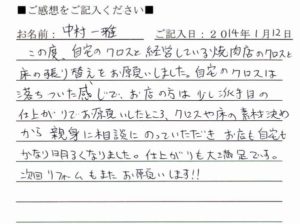 ■ご感想をご記入ください■
お名前：中村一雅　ご記入日：2014年1月12日
この度、自宅のクロスと経営している焼肉店のクロスと
床の張り替えをお願いしました。自宅のクロスは
落ちついた感じで、お店の方は少し派手目の
仕上がりでお願いしたところ、クロスや床の素材決め
から親身に相談にのっていただき お店も自宅も
かなり明るくなりました。仕上がりも大満足です。
次回リフォームもまたお願いします!!